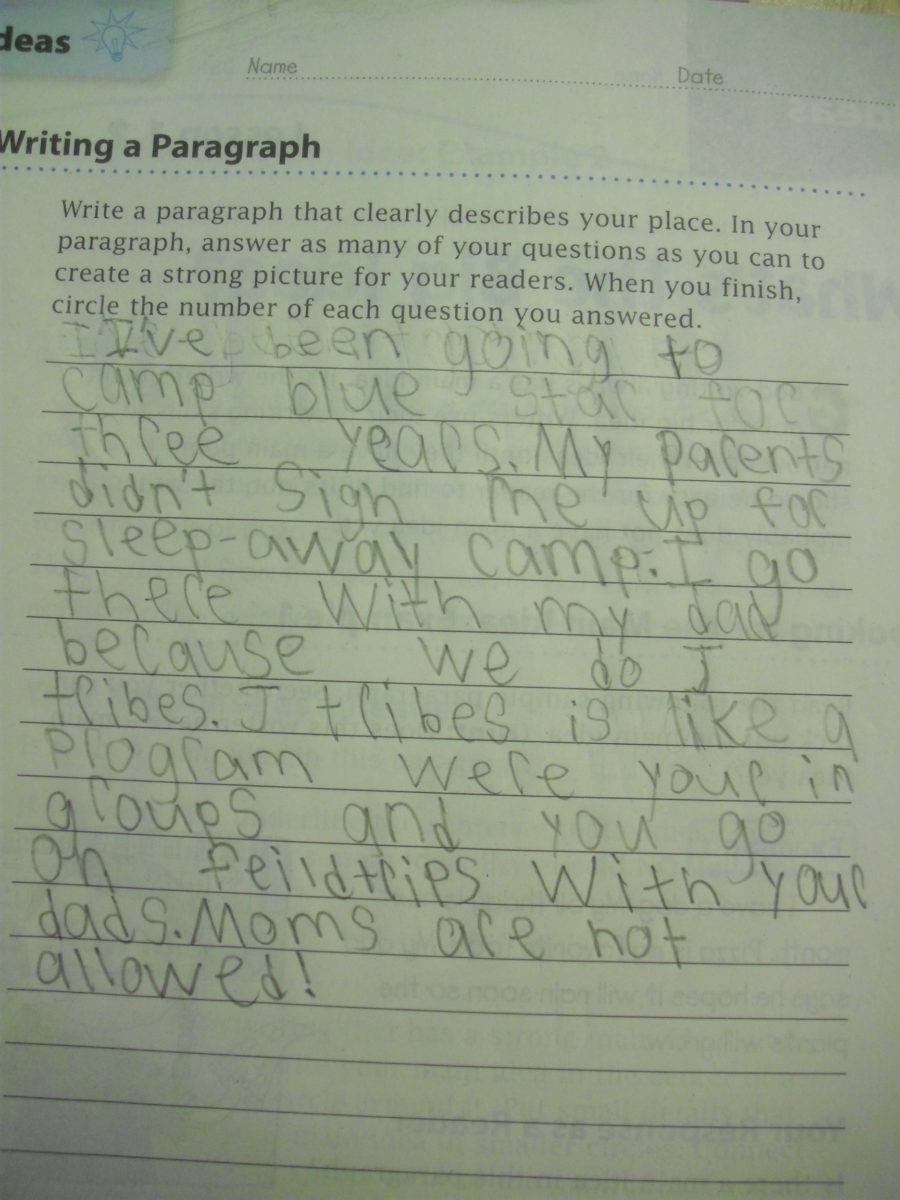 deas
Name Date
Writing a Paragraph
Write a paragraph that clearly describes your place. In your
paragraph, answer as many of your questions as you can to
create a strong picture for your readers. When you finish,
circle the number of each question you answered.
I've been going to
camp blue star for
three years. My parents
didn't sign me up for
sleep-away camp. I go
there with my dad
because we do J
tribes. J tribes is like a
program were your in
groups and you go
on feildtrips with your
dads. Moms are not
allowed!